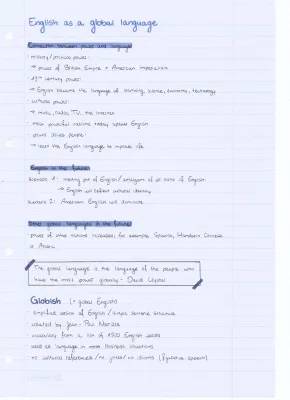 English as a global language
Connection between power and language
· military / political power:
→ power of British Empire + American imperialism
· 19th century power:
→ English became the language of learning, science, economics, technology
· cultural power:
→ music, radio, TV, the internet
· most powerful nations today speak English
· drives other people
→ learn the English language to improve life
English in the future:
Scenario 1: melting pot of English /
→ English will reflect cultural identity
Scenario 2: American English will dominate
Other global languages in the future:
· power of other nations increases, for example Spanish, Mandarin Chinese
or Arabic
"The global language is the language of the people who
have the most power globally" - David Crystal
Globish (= global English)
· simplified version of English / simple sentence structure
· created by Jean-Paul Nerrière
· vocabulary from a list of 1500 English words
· used as language in most business situations
· no cultural references / no jokes / no idioms (figurative speech)